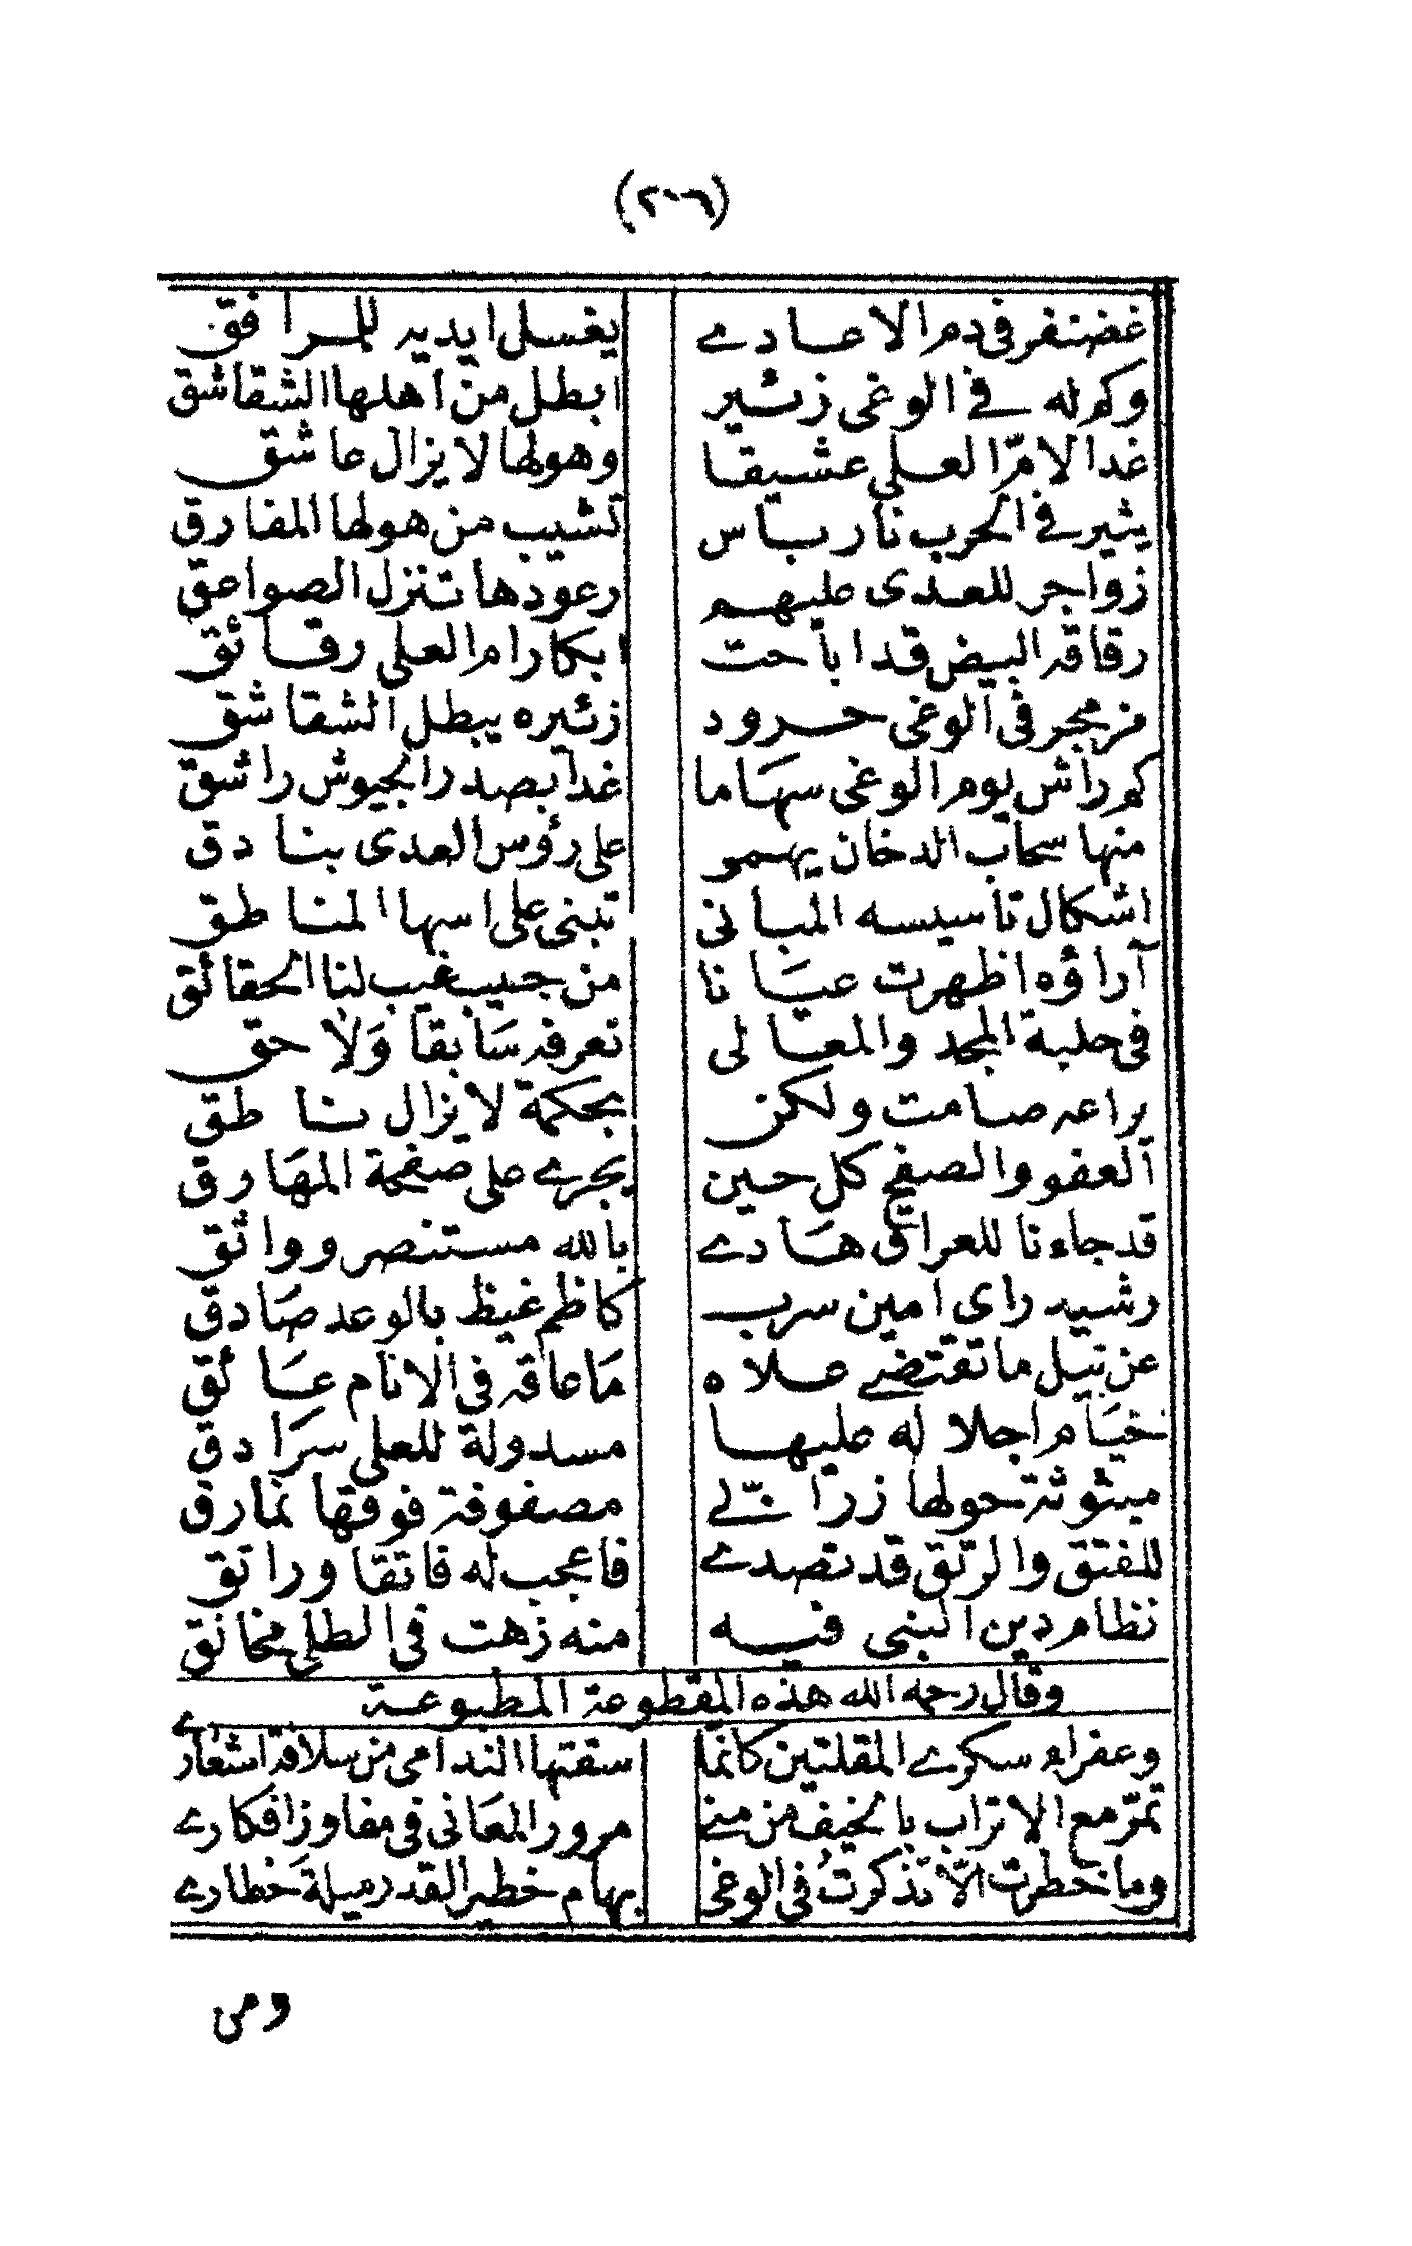 (٢٠٦)
غضنفر فى دم الاعادے يغسل ايديه للمرافق
وكم له فى الوغى زئير ابطل من اهلها الشقاشق
غدا لامّ العلى عشيقا وهولها لا يزال عاشق
يثير فى الحرب نار باس تشيب من هولها المفارق
زواجر للعدى عليهم رعودها تنزل الصواعق
رقاقه البيض قد اباحت ابكار ام العلى رقائق
مزمجر فى الوغى حرود زئيره يبطل الشقاشق
كم راش يوم الوغى سهاما غدا بصدر الجيوش راشق
منها سحاب الدخان يهمو على رؤس العدى بنادق
اشكال تاسيسه المبانى تبنى على اسها المناطق
آراؤه اظهرت عيانا من جيب غيب لنا الحقائق
فى حلبة المجد والمعالى تعرفه سَابقا وَلَاحق
يراعه صامت ولكن بحكمة لا يزال ناطق
العفو والصفح كل حين يجرے على صفحة المهَارق
قد جاءنا للعراق هَادے بالله مستنصر وواثق
رشيد راى امين سرب كاظم غيظ بالوعد صَادق
عن نيل ما تقتضے علاه مَا عاقه فى الانام عَائق
خيَام اجلا له عليها مسدولة للعلى سرَادق
مبثوثة حولها زرابّے مصفوفة فوقها نمارق
للفتق والرتق قد تصدے فاعجب له فاتقا وراتق
نظام دين النبى فيه منه زهت فى الطلى مخانق
وقال رحمه الله هذه المقطوعة المطبوعة
وعفراء سكرے المقلتين كانما سقتها الندامى من سلافة اشعارے
تمرّ مع الاتراب بالخيف من منے مرور المعَانى فى مفاوز افكارے
وما خطرت الّا تذكرتُ فى الوغى بهام خطير القد رميلة خطارے
ومى